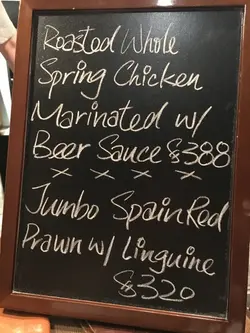 Roasted Whole
Spring Chicken
Marinated w/
Beer Sauce $388
x x x x
Jumbo Spain Red
Prawn w/ Linguine
$320